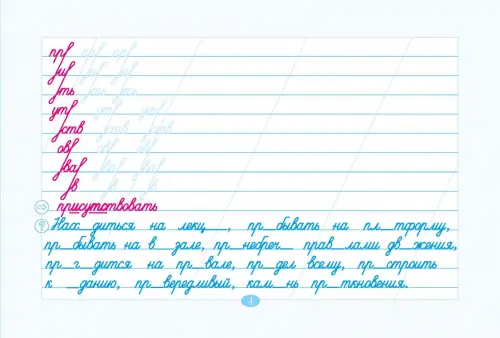 при пр пр
ши ши ши
ть ть ть
ут ут ут
ств ств ств
ов ов ов
ва ва ва
в в в
присутствовать
Нах_диться на лекц__, пр_бывать на пл_тформу,
пр_бывать на в_зале, пр_небреч_ прав_лами дв_жения,
пр_г_дится на пр_вале, пр_дел всему, пр_строить
к _данию, пр_вередливый, кам_нь пр_ткновения.
4